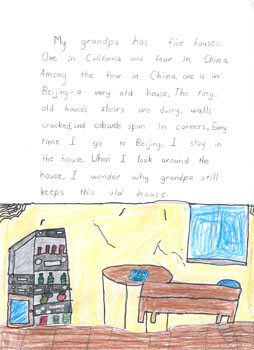 My grandpa has five houses.
One in California and four in China.
Among the four in China, one is in
Beijing-a very old house. The tiny,
old house's floors are dusty, walls
cracked, and cobwebs spun in corners. Every
time I go to Beijing, I stay in
the house. When I look around the
house, I wonder why grandpa still
keeps this old house.